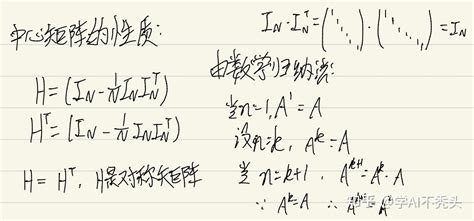 中心矩阵的性质:
H = (I_N - 1/N I_N I_N^T)
H^T = (I_N - 1/N I_N I_N^T)
H = H^T, H是对称矩阵
I_N · I_N^T = (1 1 ⋱ 1) · (1 1 ⋱ 1) = I_N
由数学归纳法:
当n=1, A^1 = A
设n=k, A^k = A
当 n=k+1, A^{k+1} = A^k · A
∵ A^k = A ∴ A^{k+1} = A
知乎 @学AI不秃头